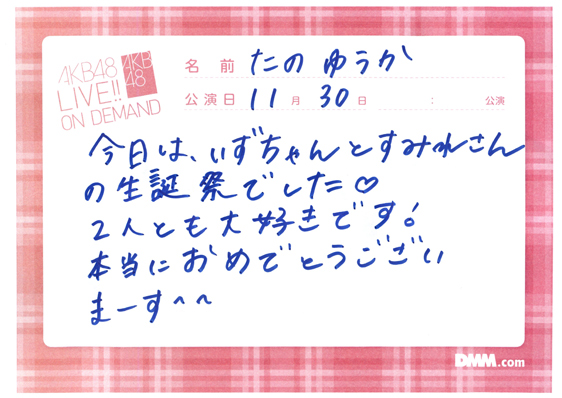 AKB48
LIVE!!
ON DEMAND
AKB
48
名前 たの ゆうか
公演日 11月 30日 : 公演
今日は、いずちゃんとすみれさん
の生誕祭でした♡
2人とも大好きです!
本当におめでとうござい
まーす^^
DMM.com